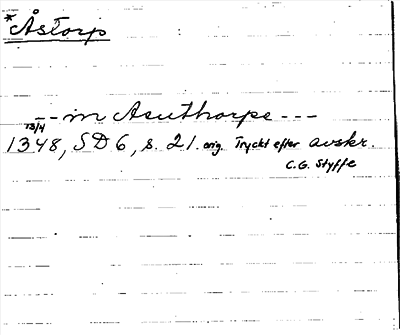 *Åstorp
-- in Asuthorpe ---
13/4
1348, SD 6, s. 21. orig. Tryckt efter avskr.
C.G. Styffe